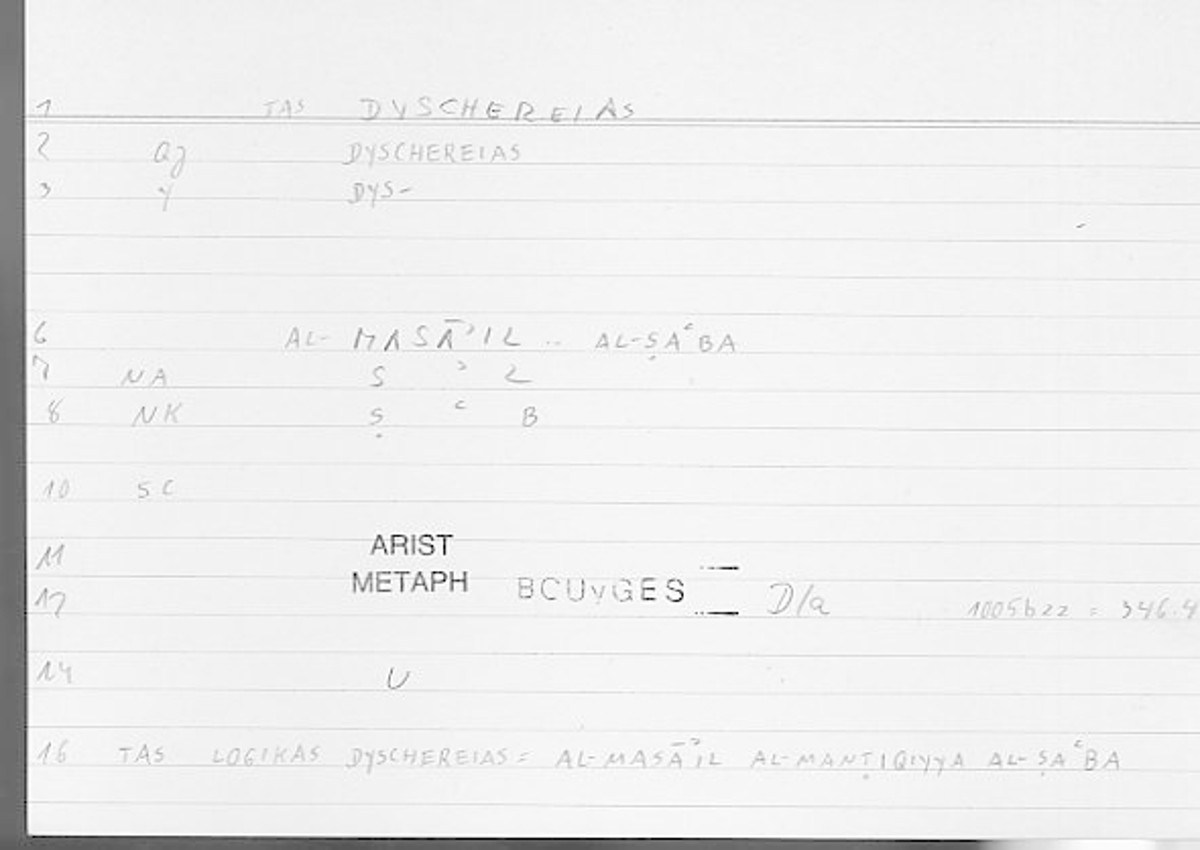 1 TAS DYSCHEREIAS
2 Qj DYSCHEREIAS
3 Y DYS-
6 AL- MASĀʾIL .. AL-ṢAʿBA
7 NA S ʾ L
8 NK Ṣ ʿ B
10 SC
11 ARIST
12 METAPH BOUYGES D/a 1005b22 = 346.4
14 U
16 TAS LOGIKAS DYSCHEREIAS = AL-MASĀʾIL AL-MANṬIQIYYA AL-ṢAʿBA